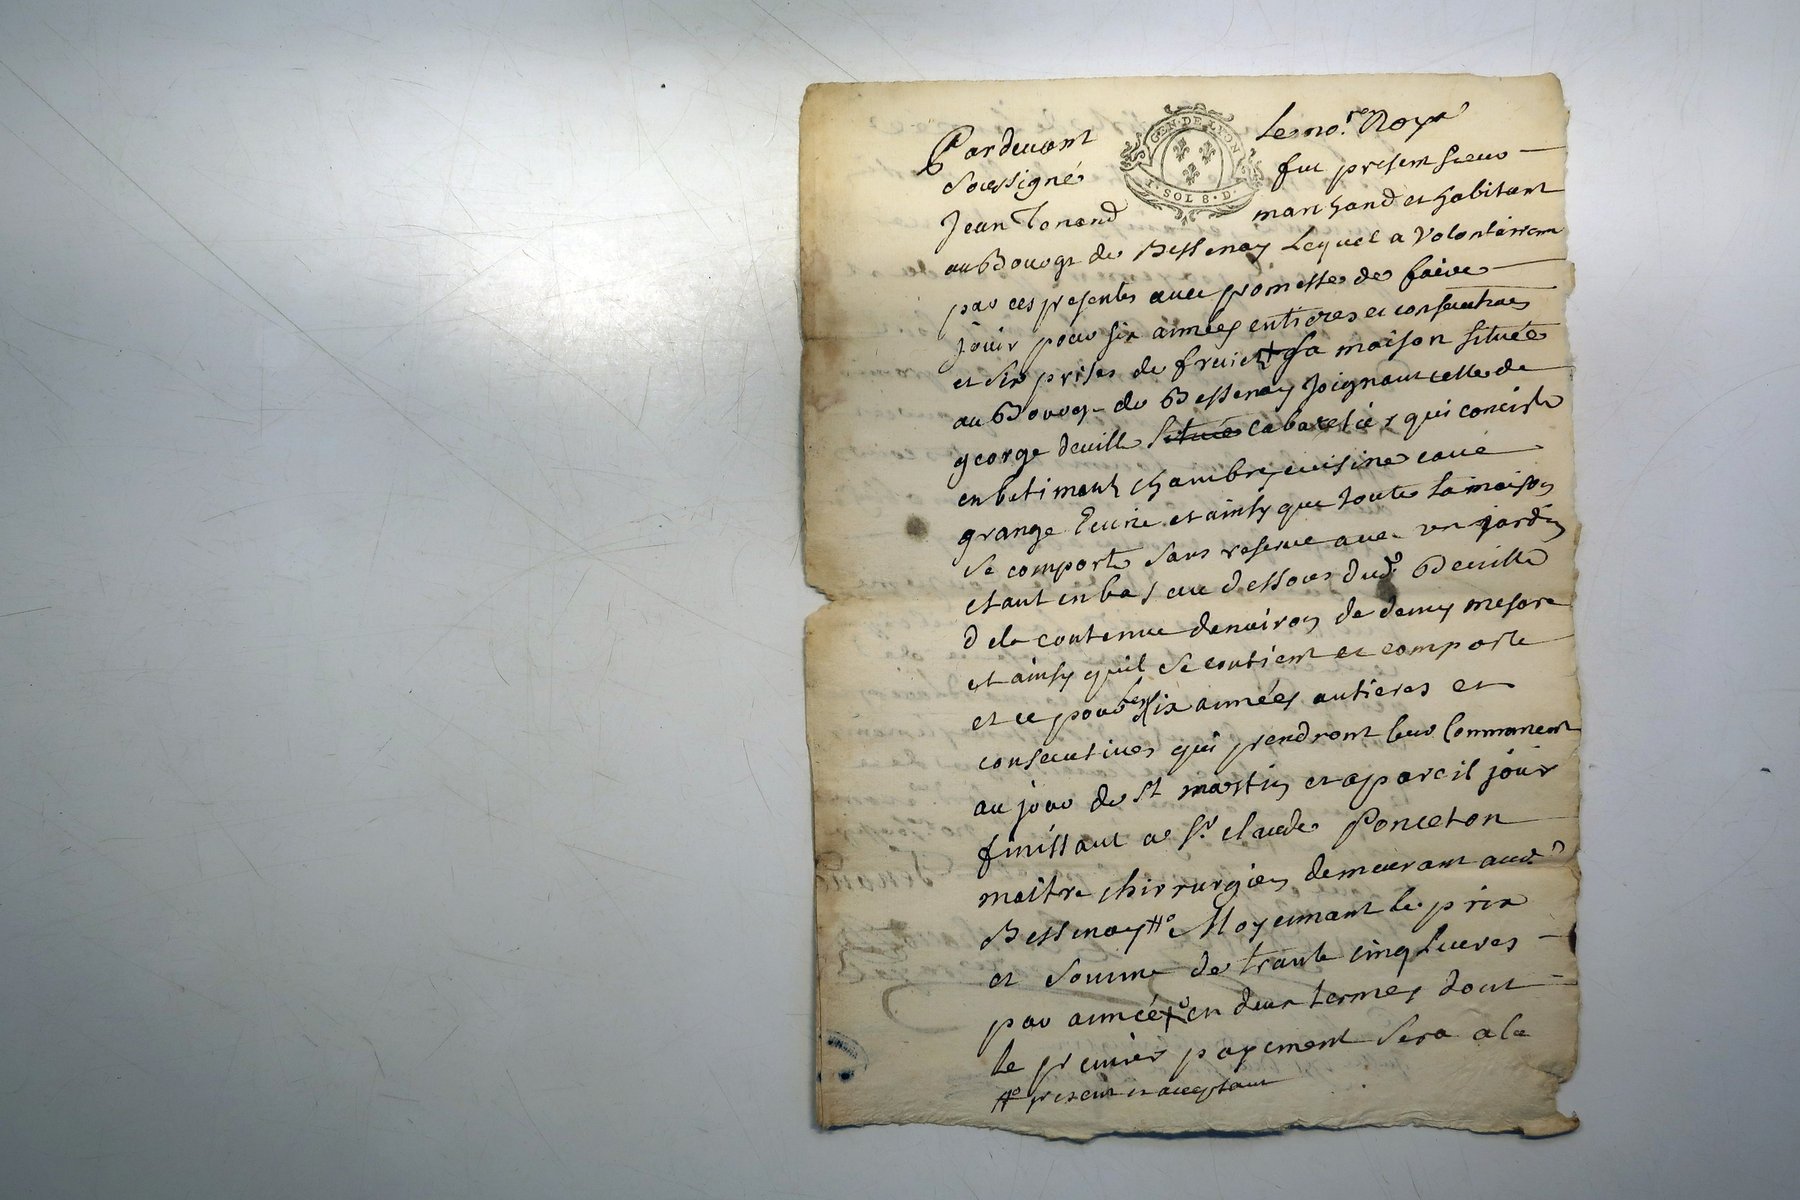 Pardevant Le no.re Royal
Soussigné fut present sieur
Jean Tenand marchand et habitant
au Bourg de Bessenay Lequel a Volontairem
par ces presentes avec promesse de faire
jouir pour six années entieres et consecutives
et six prises de fruict + sa maison située
au Bourg de Bessenay Joignant celle de
george deville située cabaretier qui conciste
en batiment chambre cuisine cave
grange Ecurie et ainsy que toute la maison
se comporte sans reserve avec un jardin
etant en bas au dessous dud. Deville
de la contenue denviron de demy mesure
et ainsy quil se contient et comporte
et ce pour les six années antieres et
consecutives qui prendront leur Commancem
au jour de St martin et a pareil jour
finissant a Sr. claude Ponceton
maitre chirurgien demeurant aud.
Bessenay # Moyennant le prix
et somme de trante cinq Livres
par année + en deux termes dont
le premier payement sera a la
# present et acceptant
GEN·DE LYON
1·SOL 8·D